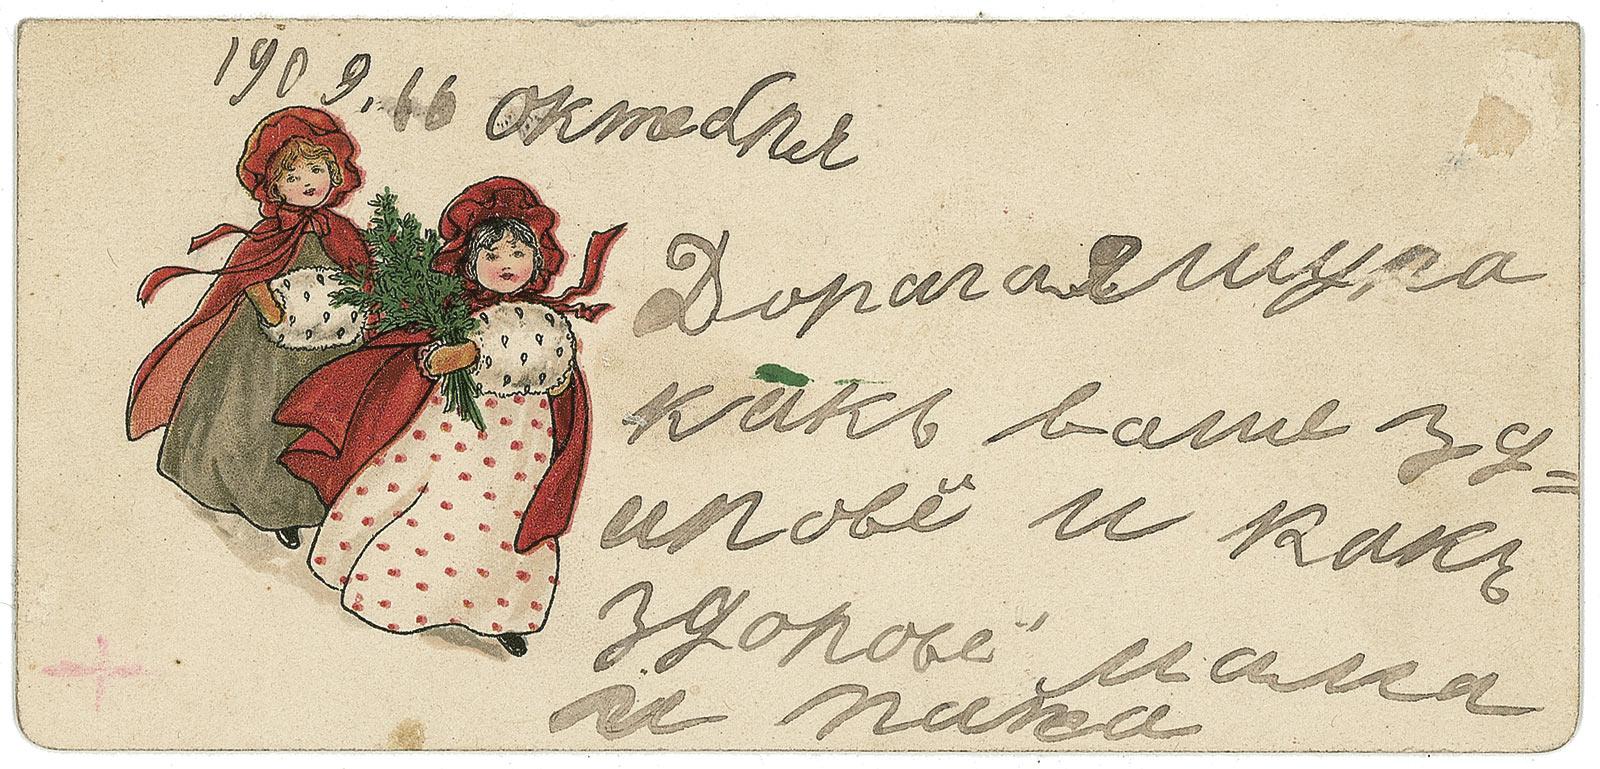 1909. 16 октебря
Дорагая шура
какъ ваше зд=
аровё и какъ
здоровё мама
и папа